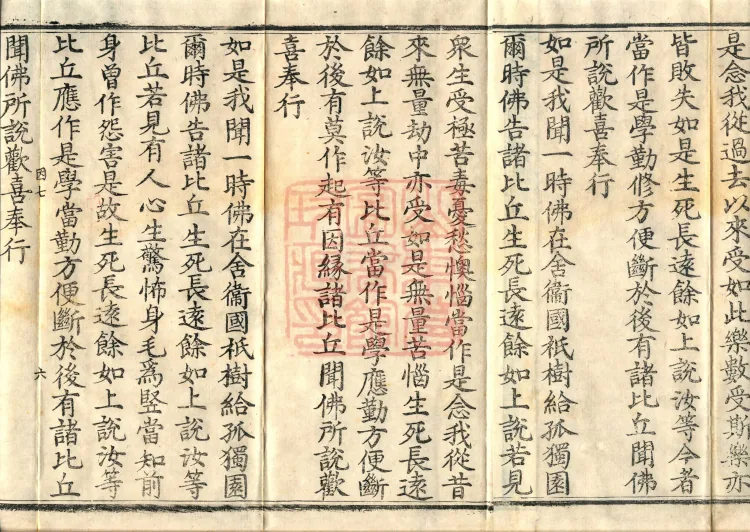 是念我從過去以來受如此樂數受斯樂亦
皆敗失如是生死長遠餘如上說汝等今者
當作是學勤修方便斷於後有諸比丘聞佛
所說歡喜奉行
如是我聞一時佛在舍衞國祇樹給孤獨園
爾時佛告諸比丘生死長遠餘如上說若見
衆生受極苦毒憂愁懊惱當作是念我從昔
來無量劫中亦受如是無量苦惱生死長遠
餘如上說汝等比丘當作是學應勤方便斷
於後有莫作起有因縁諸比丘聞佛所說歡
喜奉行
如是我聞一時佛在舍衞國祇樹給孤獨園
爾時佛告諸比丘生死長遠餘如上說汝等
比丘若見有人心生驚怖身毛爲竪當知前
身曾作怨害是故生死長遠餘如上說汝等
比丘應作是學當勤方便斷於後有諸比丘
四七 六
聞佛所說歡喜奉行